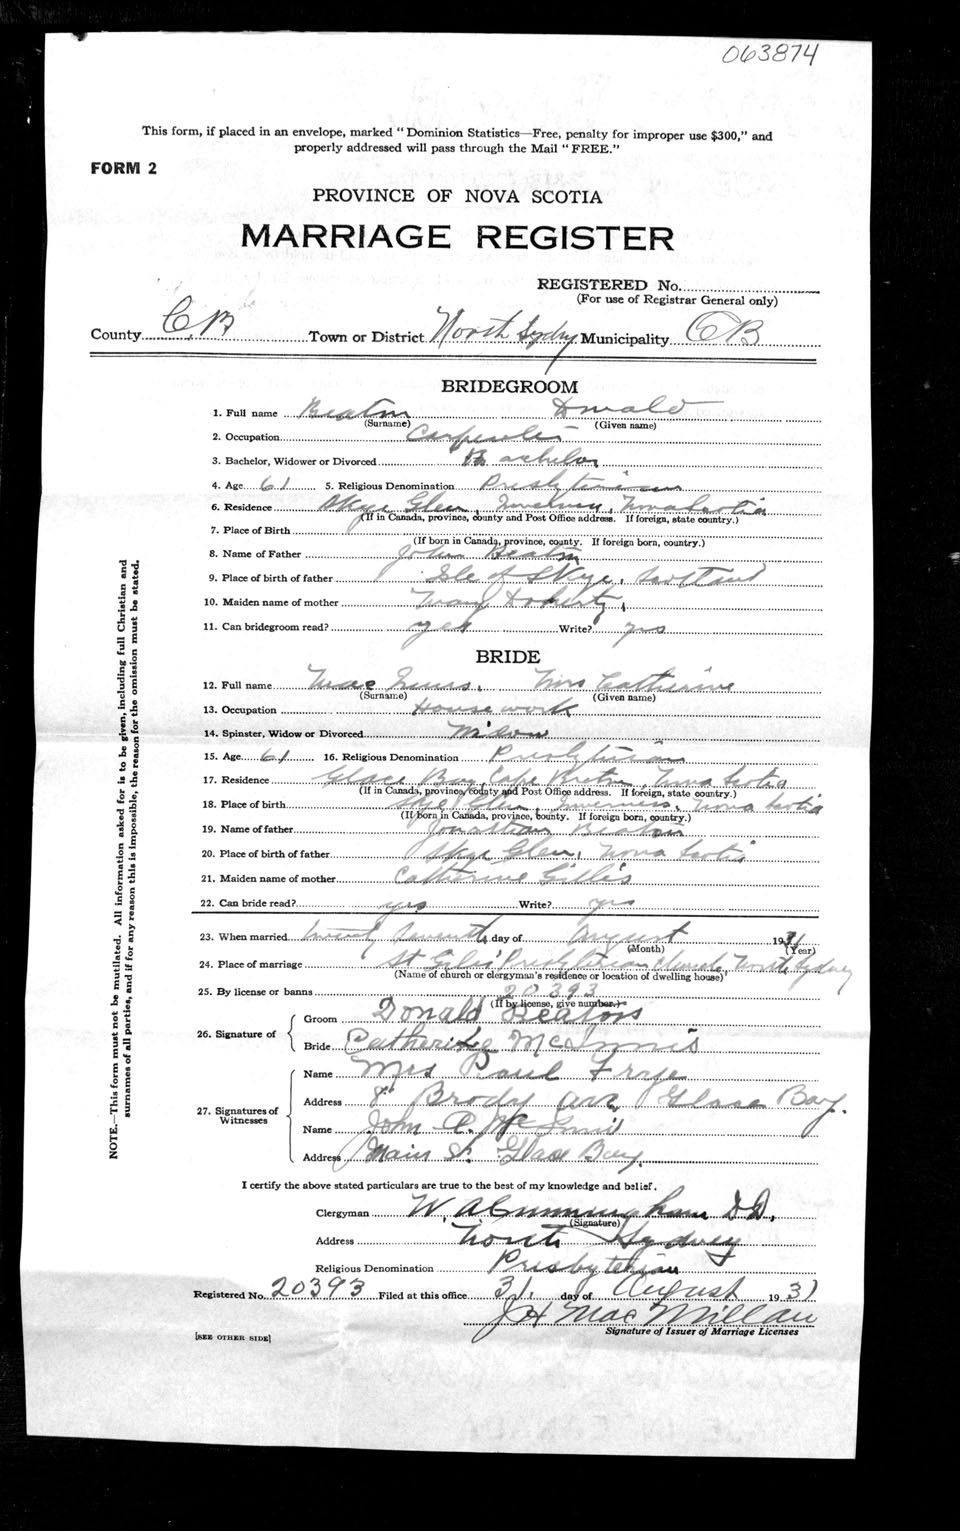 063874
This form, if placed in an envelope, marked "Dominion Statistics—Free, penalty for improper use $300," and
properly addressed will pass through the Mail "FREE."
FORM 2
PROVINCE OF NOVA SCOTIA
MARRIAGE REGISTER
REGISTERED No.
(For use of Registrar General only)
County C.B Town or District North Sydney Municipality C B
BRIDEGROOM
1. Full name Beaton Donald
(Surname) (Given name)
2. Occupation Carpenter
3. Bachelor, Widower or Divorced Bachelor
4. Age 61 5. Religious Denomination Presbyterian
6. Residence Skye Glen, Inverness, Nova Scotia
(If in Canada, province, county and Post Office address. If foreign, state country.)
7. Place of Birth
(If born in Canada, province, county. If foreign born, country.)
8. Name of Father John Beaton
9. Place of birth of father Isle of Skye, Scotland
10. Maiden name of mother Mary
11. Can bridegroom read? yes Write? yes
BRIDE
12. Full name Mac Innis, Mrs Catherine
(Surname) (Given name)
13. Occupation House work
14. Spinster, Widow or Divorced Widow
15. Age 61 16. Religious Denomination Presbyterian
17. Residence Glace Bay, Cape Breton, Nova Scotia
(If in Canada, province, county and Post Office address. If foreign, state country.)
18. Place of birth Skye Glen, Inverness, Nova Scotia
(If born in Canada, province, county. If foreign born, country.)
19. Name of father Jonathan Beaton
20. Place of birth of father Skye Glen, Nova Scotia
21. Maiden name of mother Catherine Gillis
22. Can bride read? yes Write? yes
23. When married twenty seventh day of August 1931
(Month) (Year)
24. Place of marriage St Giles' Presbyterian Church, North Sydney
(Name of church or clergyman's residence or location of dwelling house)
25. By license or banns 20393
(If by license, give number.)
26. Signature of
Groom Donald Beaton
Bride Catherine McInnis
27. Signatures of Witnesses
Name Mrs Paul Frye
Address 8 Brody Ave, Glace Bay.
Name John
Address Main St. Glace Bay,
I certify the above stated particulars are true to the best of my knowledge and belief.
Clergyman W. A Cunningham D.D.
(Signature)
Address North Sydney
Religious Denomination Presbyterian
Registered No. 20393 Filed at this office 31, day of August 1931
J H MacMillan
Signature of Issuer of Marriage Licenses
[SEE OTHER SIDE]
NOTE.—This form must not be mutilated. All information asked for is to be given, including full Christian and
surnames of all parties, and if for any reason this is impossible, the reason for the omission must be stated.